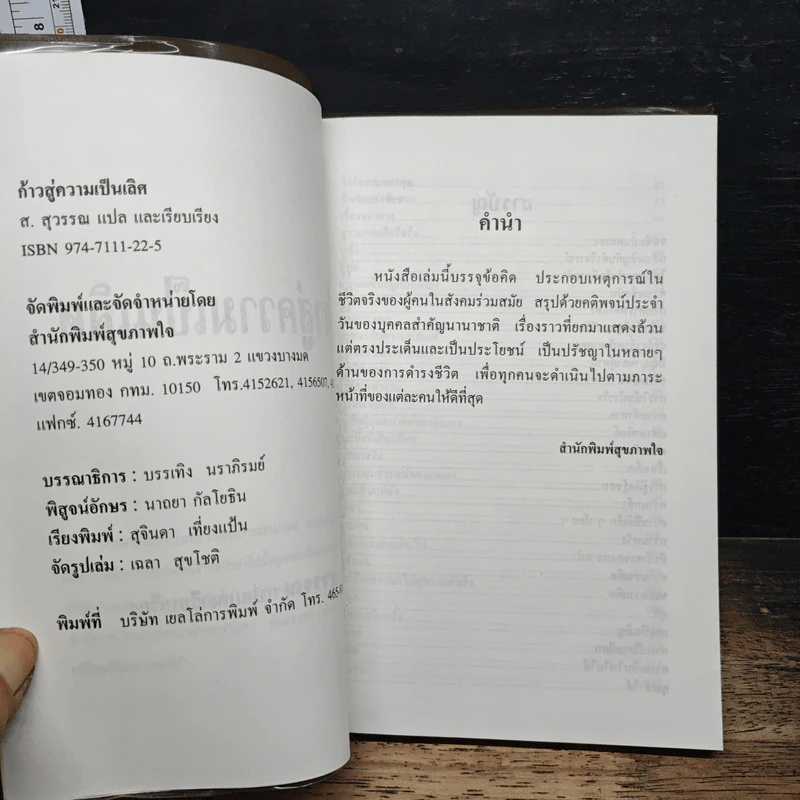 ก้าวสู่ความเป็นเลิศ
ส. สุวรรณ แปล และเรียบเรียง
ISBN 974-7111-22-5
จัดพิมพ์และจัดจำหน่ายโดย
สำนักพิมพ์สุขภาพใจ
14/349-350 หมู่ 10 ถ.พระราม 2 แขวงบางมด
เขตจอมทอง กทม. 10150 โทร.4152621, 4156507,
แฟกซ์. 4167744
บรรณาธิการ : บรรเทิง นราภิรมย์
พิสูจน์อักษร : นาถยา กัลโยธิน
เรียงพิมพ์ : สุจินดา เที่ยงแป้น
จัดรูปเล่ม : เฉลา สุขโชติ
พิมพ์ที่ บริษัท เยลโล่การพิมพ์ จำกัด โทร.
คำนำ
หนังสือเล่มนี้บรรจุข้อคิด ประกอบเหตุการณ์ใน
ชีวิตจริงของผู้คนในสังคมร่วมสมัย สรุปด้วยคติพจน์ประจำ
วันของบุคคลสำคัญนานาชาติ เรื่องราวที่ยกมาแสดงล้วน
แต่ตรงประเด็นและเป็นประโยชน์ เป็นปรัชญาในหลายๆ
ด้านของการดำรงชีวิต เพื่อทุกคนจะดำเนินไปตามภาระ
หน้าที่ของแต่ละคนให้ดีที่สุด
สำนักพิมพ์สุขภาพใจ